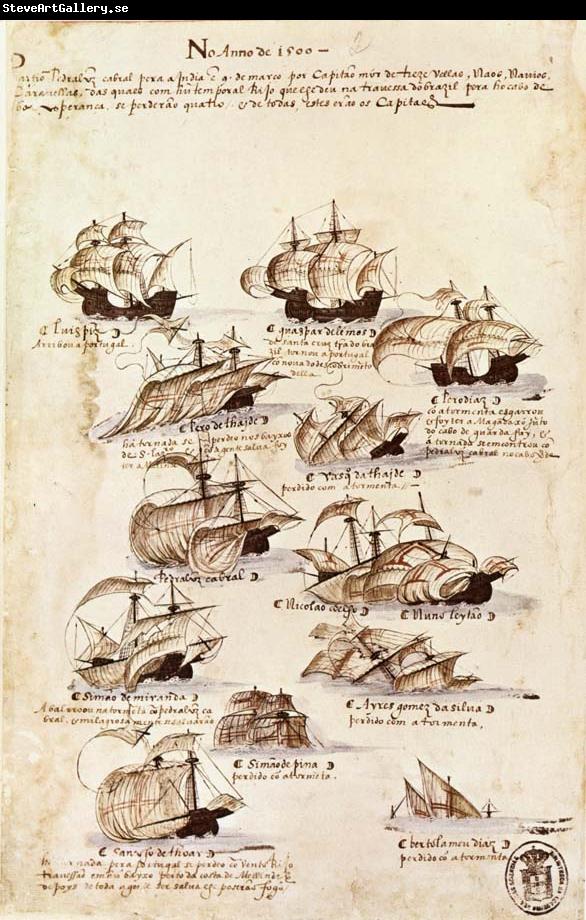 SteveArtGallery.se
No Anno de 1500 —
partio Pedralvz cabral pera a India e 9. de março por Capitão mór de treze vellas, Naos, Navios,
Caravellas, das quaes com hũ temporal Rijo que lhe deu na travessa do brazil pera ho cabo de
boa esperança, se perderão quatro, e de todas, estes erão os Capitaẽs
Luis piz
Arribou a portugal.
guaspar de lemos
de santa cruz trado bra
zil tornou a portugal
co nova do descobrimeto
della
Pero diaz
cõ a tormenta esgarrou
e foy ter a Magadaxo, juto
do cabo de guardafuy, e
a tornada se emcontrou co
pedralvz cabral no cabo Vde
Pero de thajde
ha tornada se perdeo nos bayxos
de S. Lazo e a gente salva foy
ter a
Vasq da thajde
perdido com a tormenta.
Pedralvz cabral
Nicolao coelho
Nuno leytão
Simão de miranda
Abalrroou na tormeta cõ pedralvz ca
bral, e milagrosamente se salvarão
Ayres gomez da silva
perdido com a tormenta,
Simão de pina
perdido cõ a tormeta.
Sancho de thoar
tornada pera Portugal se perdeo cõ vento Rijo
travessão em hũ bayxo perto da costa de Melinde, E
depoys de toda a gente ser salva lhe poserão fogo
bertolameu diaz
perdido cõ a tormenta